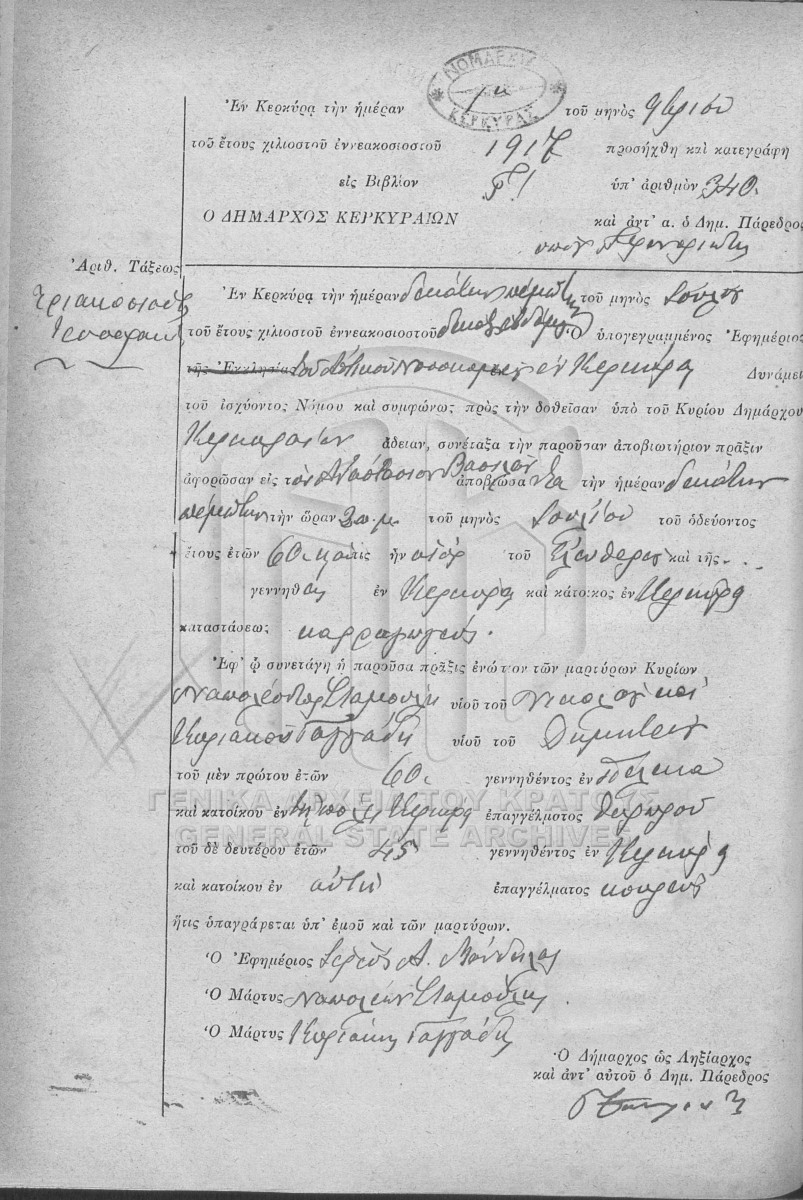 ΝΟΜΑΡΧΙΑ ΚΕΡΚΥΡΑΣ
Ἐν Κερκύρᾳ τὴν ἡμέραν τοῦ μηνὸς 9βρίου
τοῦ ἔτους χιλιοστοῦ ἐννεακοσιοστοῦ 1917 προσήχθη καὶ κατεγράφη
εἰς Βιβλίον Γ! ὑπ' ἀριθμὸν 340.
Ο ΔΗΜΑΡΧΟΣ ΚΕΡΚΥΡΑΙΩΝ καὶ ἀντ' α. ὁ Δημ. Πάρεδρος
Ἀριθ. Τάξεως
Τριακοσιοστὴ
Ἐν Κερκύρᾳ τὴν ἡμέραν δεκάτην πέμπτην τοῦ μηνὸς Ἰουλίου
τοῦ ἔτους χιλιοστοῦ ἐννεακοσιοστοῦ δεκάτου ἑβδόμου ὁ ὑπογεγραμμένος Ἐφημέριος
τῆς Ἐκκλησίας τοῦ Ἀστικοῦ Νοσοκομείου ἐν Κερκύρᾳ Δυνάμει
τοῦ ἰσχύοντος Νόμου καὶ συμφώνως πρὸς τὴν δοθεῖσαν ὑπὸ τοῦ Κυρίου Δημάρχου
Κερκυραίων ἄδειαν, συνέταξα τὴν παροῦσαν ἀποβιωτήριον πρᾶξιν
ἀφορῶσαν εἰς τὸν Ἀναστάσιον Βασιλᾶν ἀποβιώσαντα τὴν ἡμέραν δεκάτην
πέμπτην τὴν ὥραν 3 π.μ. τοῦ μηνὸς Ἰουλίου τοῦ ὁδεύοντος
ἔτους ἐτῶν 60. καὶ τις ἦν υἱὸς τοῦ Ἐλευθερίου καὶ τῆς . . .
γεννηθεὶς ἐν Κερκύρᾳ καὶ κάτοικος ἐν Κερκύρᾳ
καταστάσεως καρραγωγεύς.
Ἐφ' ᾧ συνετάγη ἡ παροῦσα πρᾶξις ἐνώπιον τῶν μαρτύρων Κυρίων
Ναπολέοντος Σταμούλη υἱοῦ τοῦ Νικολάου καὶ
Κυριακοῦ Γαγγάδη υἱοῦ τοῦ Δημητρίου
τοῦ μὲν πρώτου ἐτῶν 60. γεννηθέντος ἐν Πέλεκα
καὶ κατοίκου ἐν τῇ πόλει Κερκύρᾳ ἐπαγγέλματος θυρωροῦ
τοῦ δὲ δευτέρου ἐτῶν 45 γεννηθέντος ἐν Κερκύρᾳ
καὶ κατοίκου ἐν αὐτῇ ἐπαγγέλματος κουρεὺς
ἥτις ὑπογράφεται ὑπ' ἐμοῦ καὶ τῶν μαρτύρων.
Ὁ Ἐφημέριος Ἱερεὺς Α.
Ὁ Μάρτυς Ναπολέων Σταμούλης.
Ὁ Μάρτυς Κυριάκης Γαγγάδης
Ὁ Δήμαρχος ὡς Ληξίαρχος
καὶ ἀντ' αὐτοῦ ὁ Δημ. Πάρεδρος
ΓΕΝΙΚΑ ΑΡΧΕΙΑ ΤΟΥ ΚΡΑΤΟΥΣ
GENERAL STATE ARCHIVES